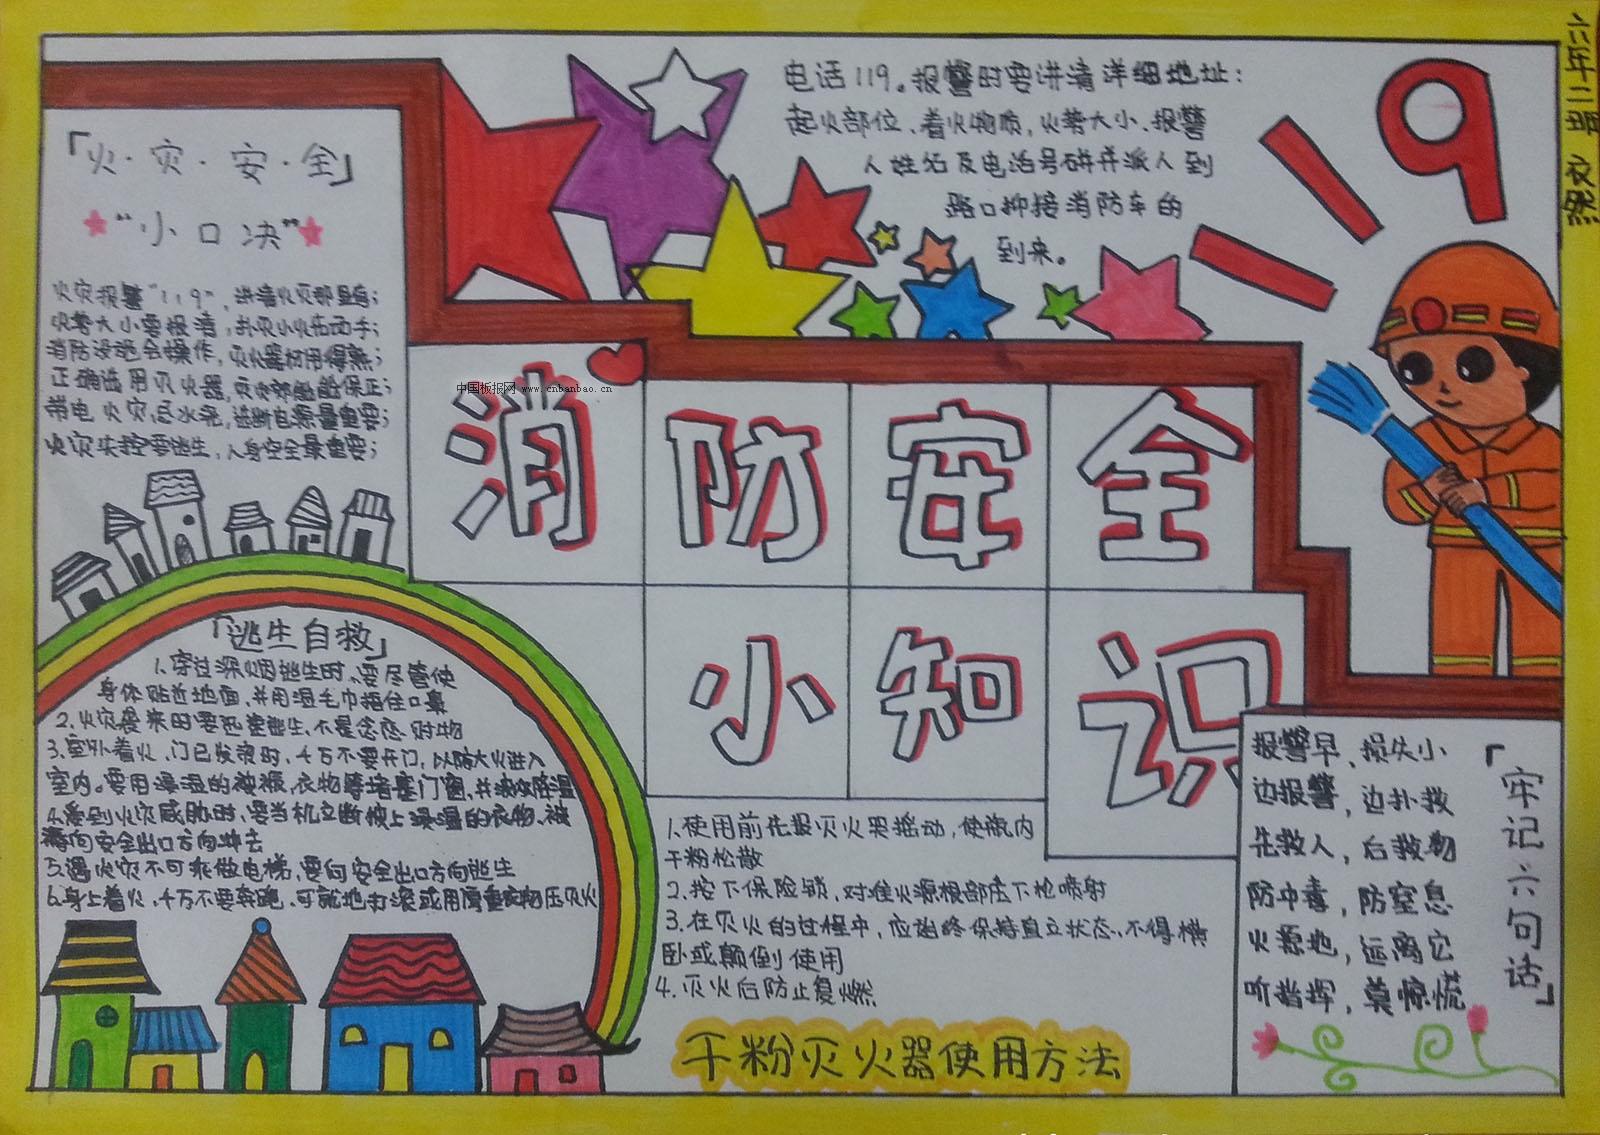 六年二班 衣然
电话119。报警时要讲清详细地址:
起火部位、着火物质,火势大小、报警
人姓名及电话号码并派人到
路口抑接消防车的
到来。
119
「火·灾·安·全」
“小口决”
火灾报警“119”,讲清火灾那里有;
火势大小要报清,扑灭小火先动手;
消防设施会操作,灭火器材用得熟;
正确选用灭火器,
带电火灾忌水浇,选断电源最重要;
火灾失控要逃生,人身安全最重要;
中国板报网 www.cnbanbao.cn
消防安全
小知识
「逃生自救」
1.穿过浓烟逃生时,要尽管使
身体贴近地面,并用湿毛巾捂住口鼻
2.火灾袭来时要迅速逃生,不要念恋财物
3.室外着火,门已发烫时,千万不要开门,以防大火进入
室内。要用浸湿的被褥,衣物等堵塞门窗,并泼水降温
4.受到火灾威胁时,要当机立断披上浸湿的衣物、被
褥向安全出口方向冲去
5.遇火灾不可乘做电梯,要向安全出口方向逃生
6.身上着火,千万不要奔跑,可就地打滚或用厚重衣物压灭火
1.使用前先报灭火器摇动,使瓶内
干粉松散
2.按下保险锁,对准火源根部压下枪喷射
3.在灭火的过程中,应始终保持直立状态,不得横
卧或颠倒使用
4.灭火后防止复燃
干粉灭火器使用方法
「牢记六句话」
报警早,损失小
边报警,边扑救
先救人,后救物
防中毒,防窒息
火源地,远离它
听指挥,莫惊慌